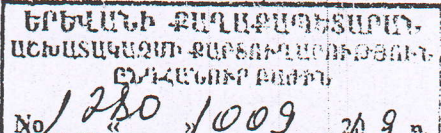 ԵՐԵՎԱՆԻ ՔԱՂԱՔԱՊԵՏԱՐԱՆ
ԱՇԽԱՏԱԿԱԶՄԻ ՔԱՐՏՈՒՂԱՐՈՒԹՅՈՒՆ
ԸՆԴՀԱՆՈՒՐ ԲԱԺԻՆ
No